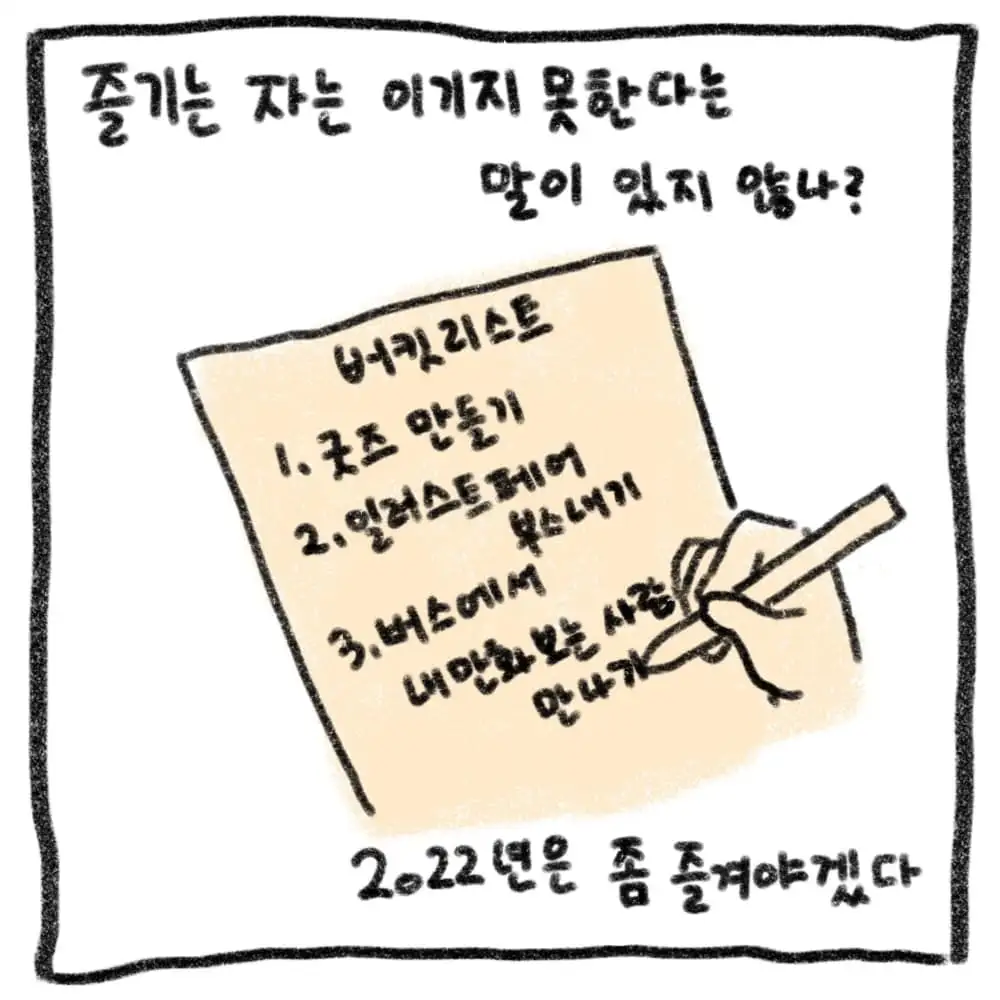 즐기는 자는 이기지 못한다는
말이 있지 않나?
버킷리스트
1. 굿즈 만들기
2. 일러스트페어
부스내기
3. 버스에서
내 만화 보는 사람
만나기
2022년은 좀 즐겨야겠다